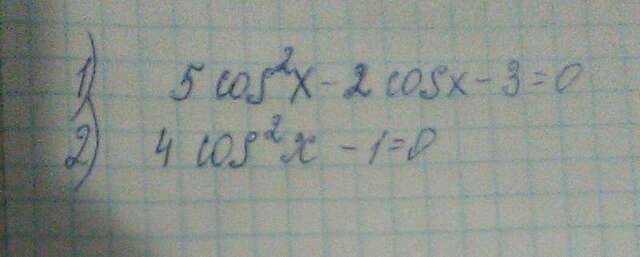 1) 5 cos²x - 2 cosx - 3 = 0
2) 4 cos²x - 1 = 0